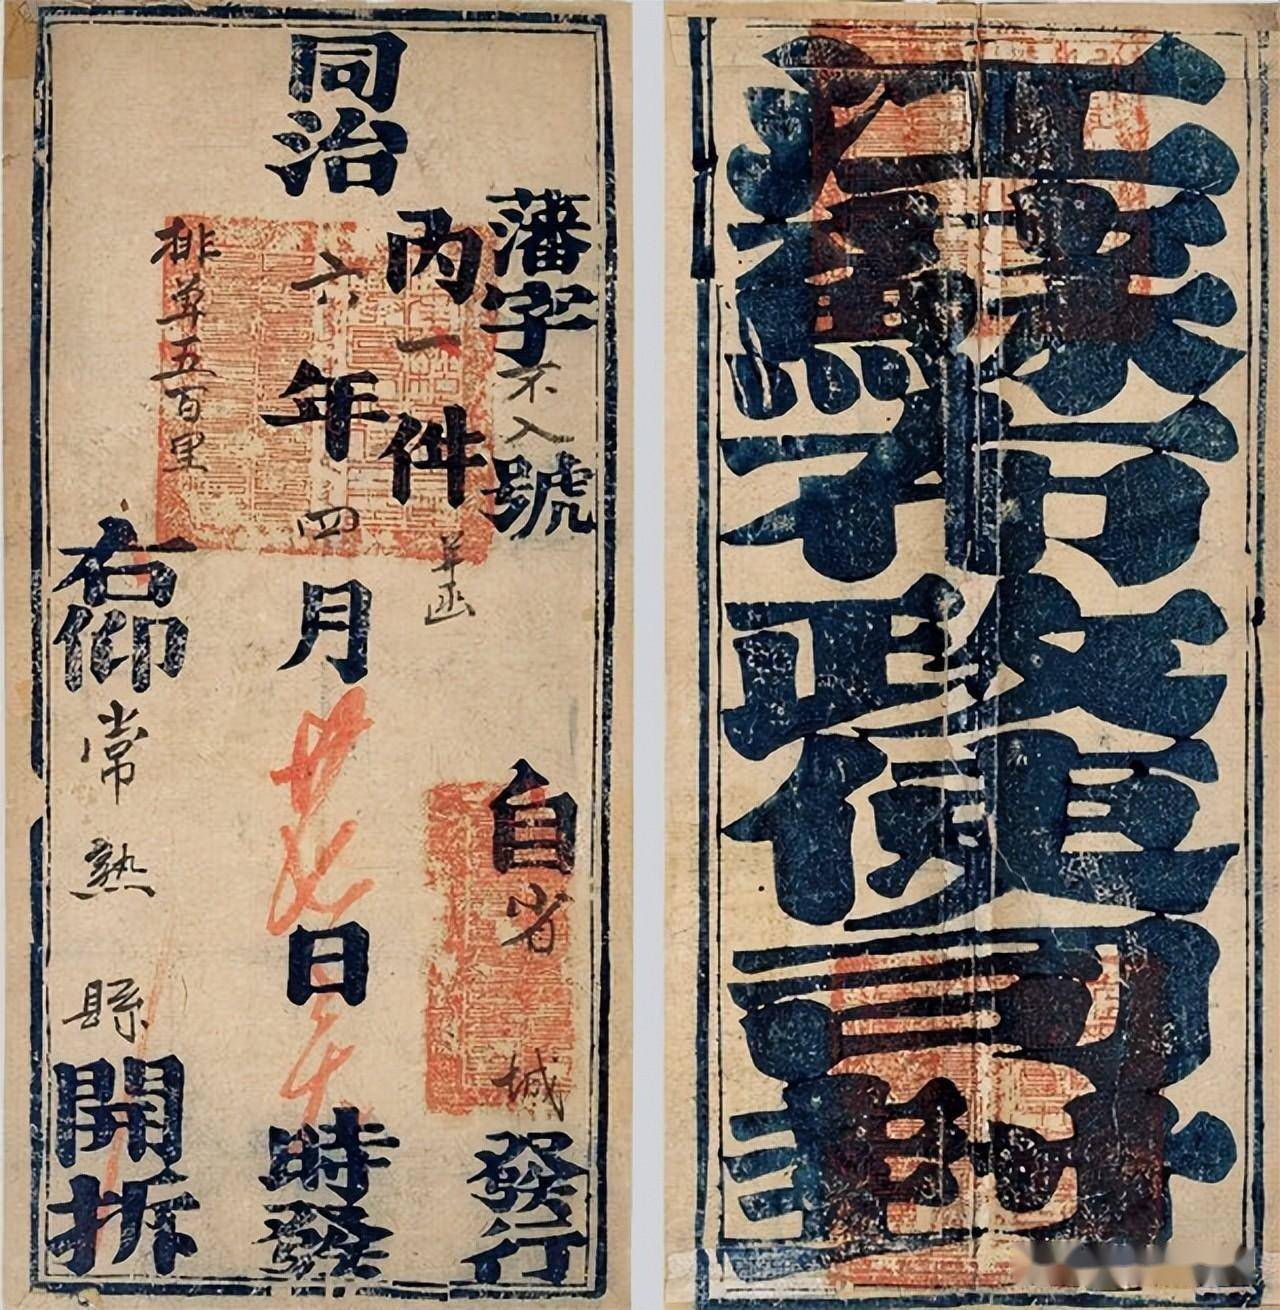 藩字不入號 自省城發行
内一件
同治六年四月廿日時發
排單五百里
右仰常熟縣開拆
江蘇布政使司封